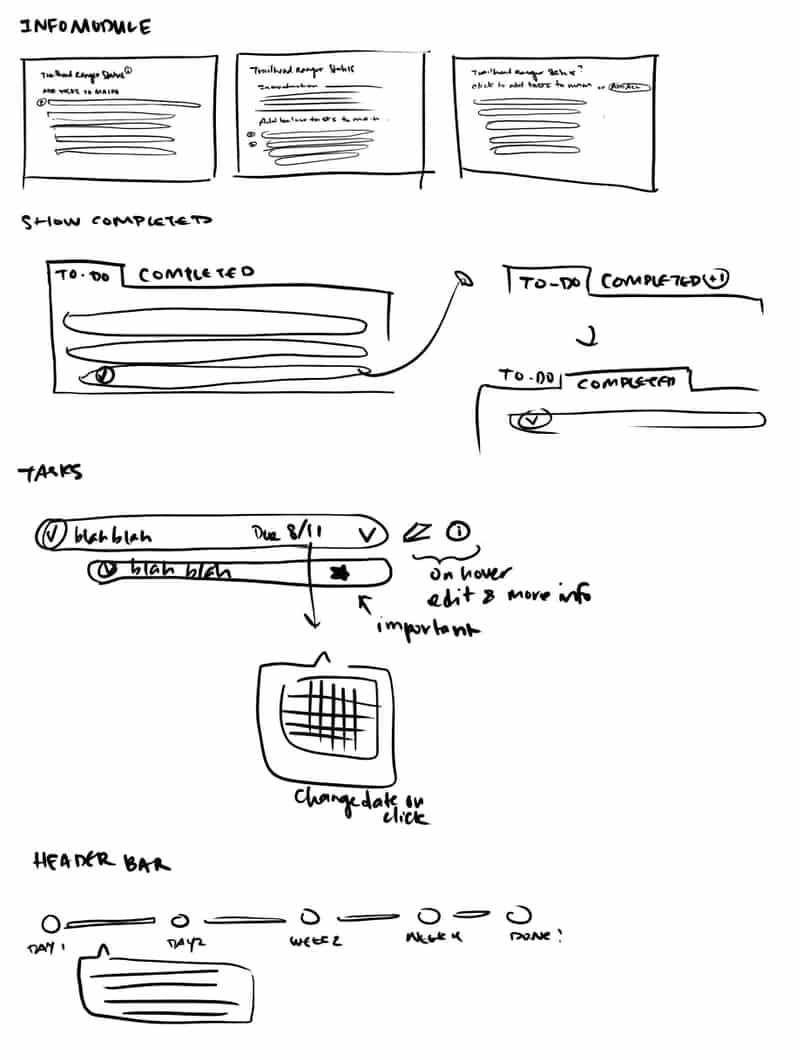 INFO MODULE
Trailhead Ranger Status ⓘ
ADD TASKS TO MAIN
Trailhead Ranger Status
Introduction
Add below tasks to main
Trailhead Ranger Status?
click to add tasks to main or ADD ALL
SHOW COMPLETED
TO-DO COMPLETED
TO-DO COMPLETED +1
TO-DO COMPLETED
TASKS
blah blah Due 8/11
blah blah
on hover
edit & more info
important
Change date on
click
HEADER BAR
DAY 1 DAY 2 WEEK 2 WEEK 4 DONE!